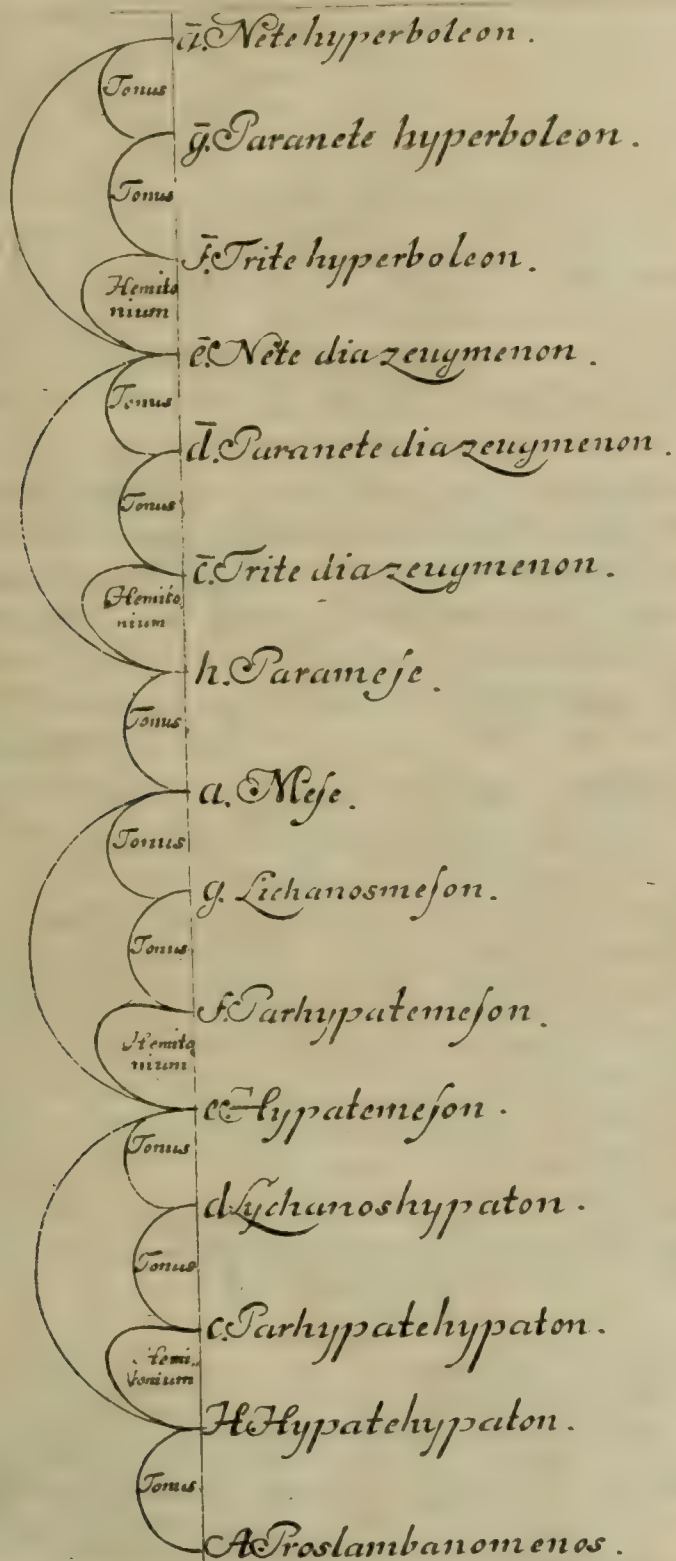 ā. Nete hyperboleon.
Tonus
ḡ. Paranete hyperboleon.
Tonus
f̄. Trite hyperboleon.
Hemito
nium
ē. Nete diazeugmenon.
Tonus
d̄. Paranete diazeugmenon.
Tonus
c̄. Trite diazeugmenon.
Hemito
nium
h. Parameſe.
Tonus
a. Meſe.
Tonus
g. Lichanosmeſon.
Tonus
f. Parhypatemeſon.
Hemito
nium
e. Hypatemeſon.
Tonus
d. Lychanoshypaton.
Tonus
c. Parhypatehypaton.
Hemi
tonium
H. Hypatehypaton.
Tonus
A. Proslambanomenos.